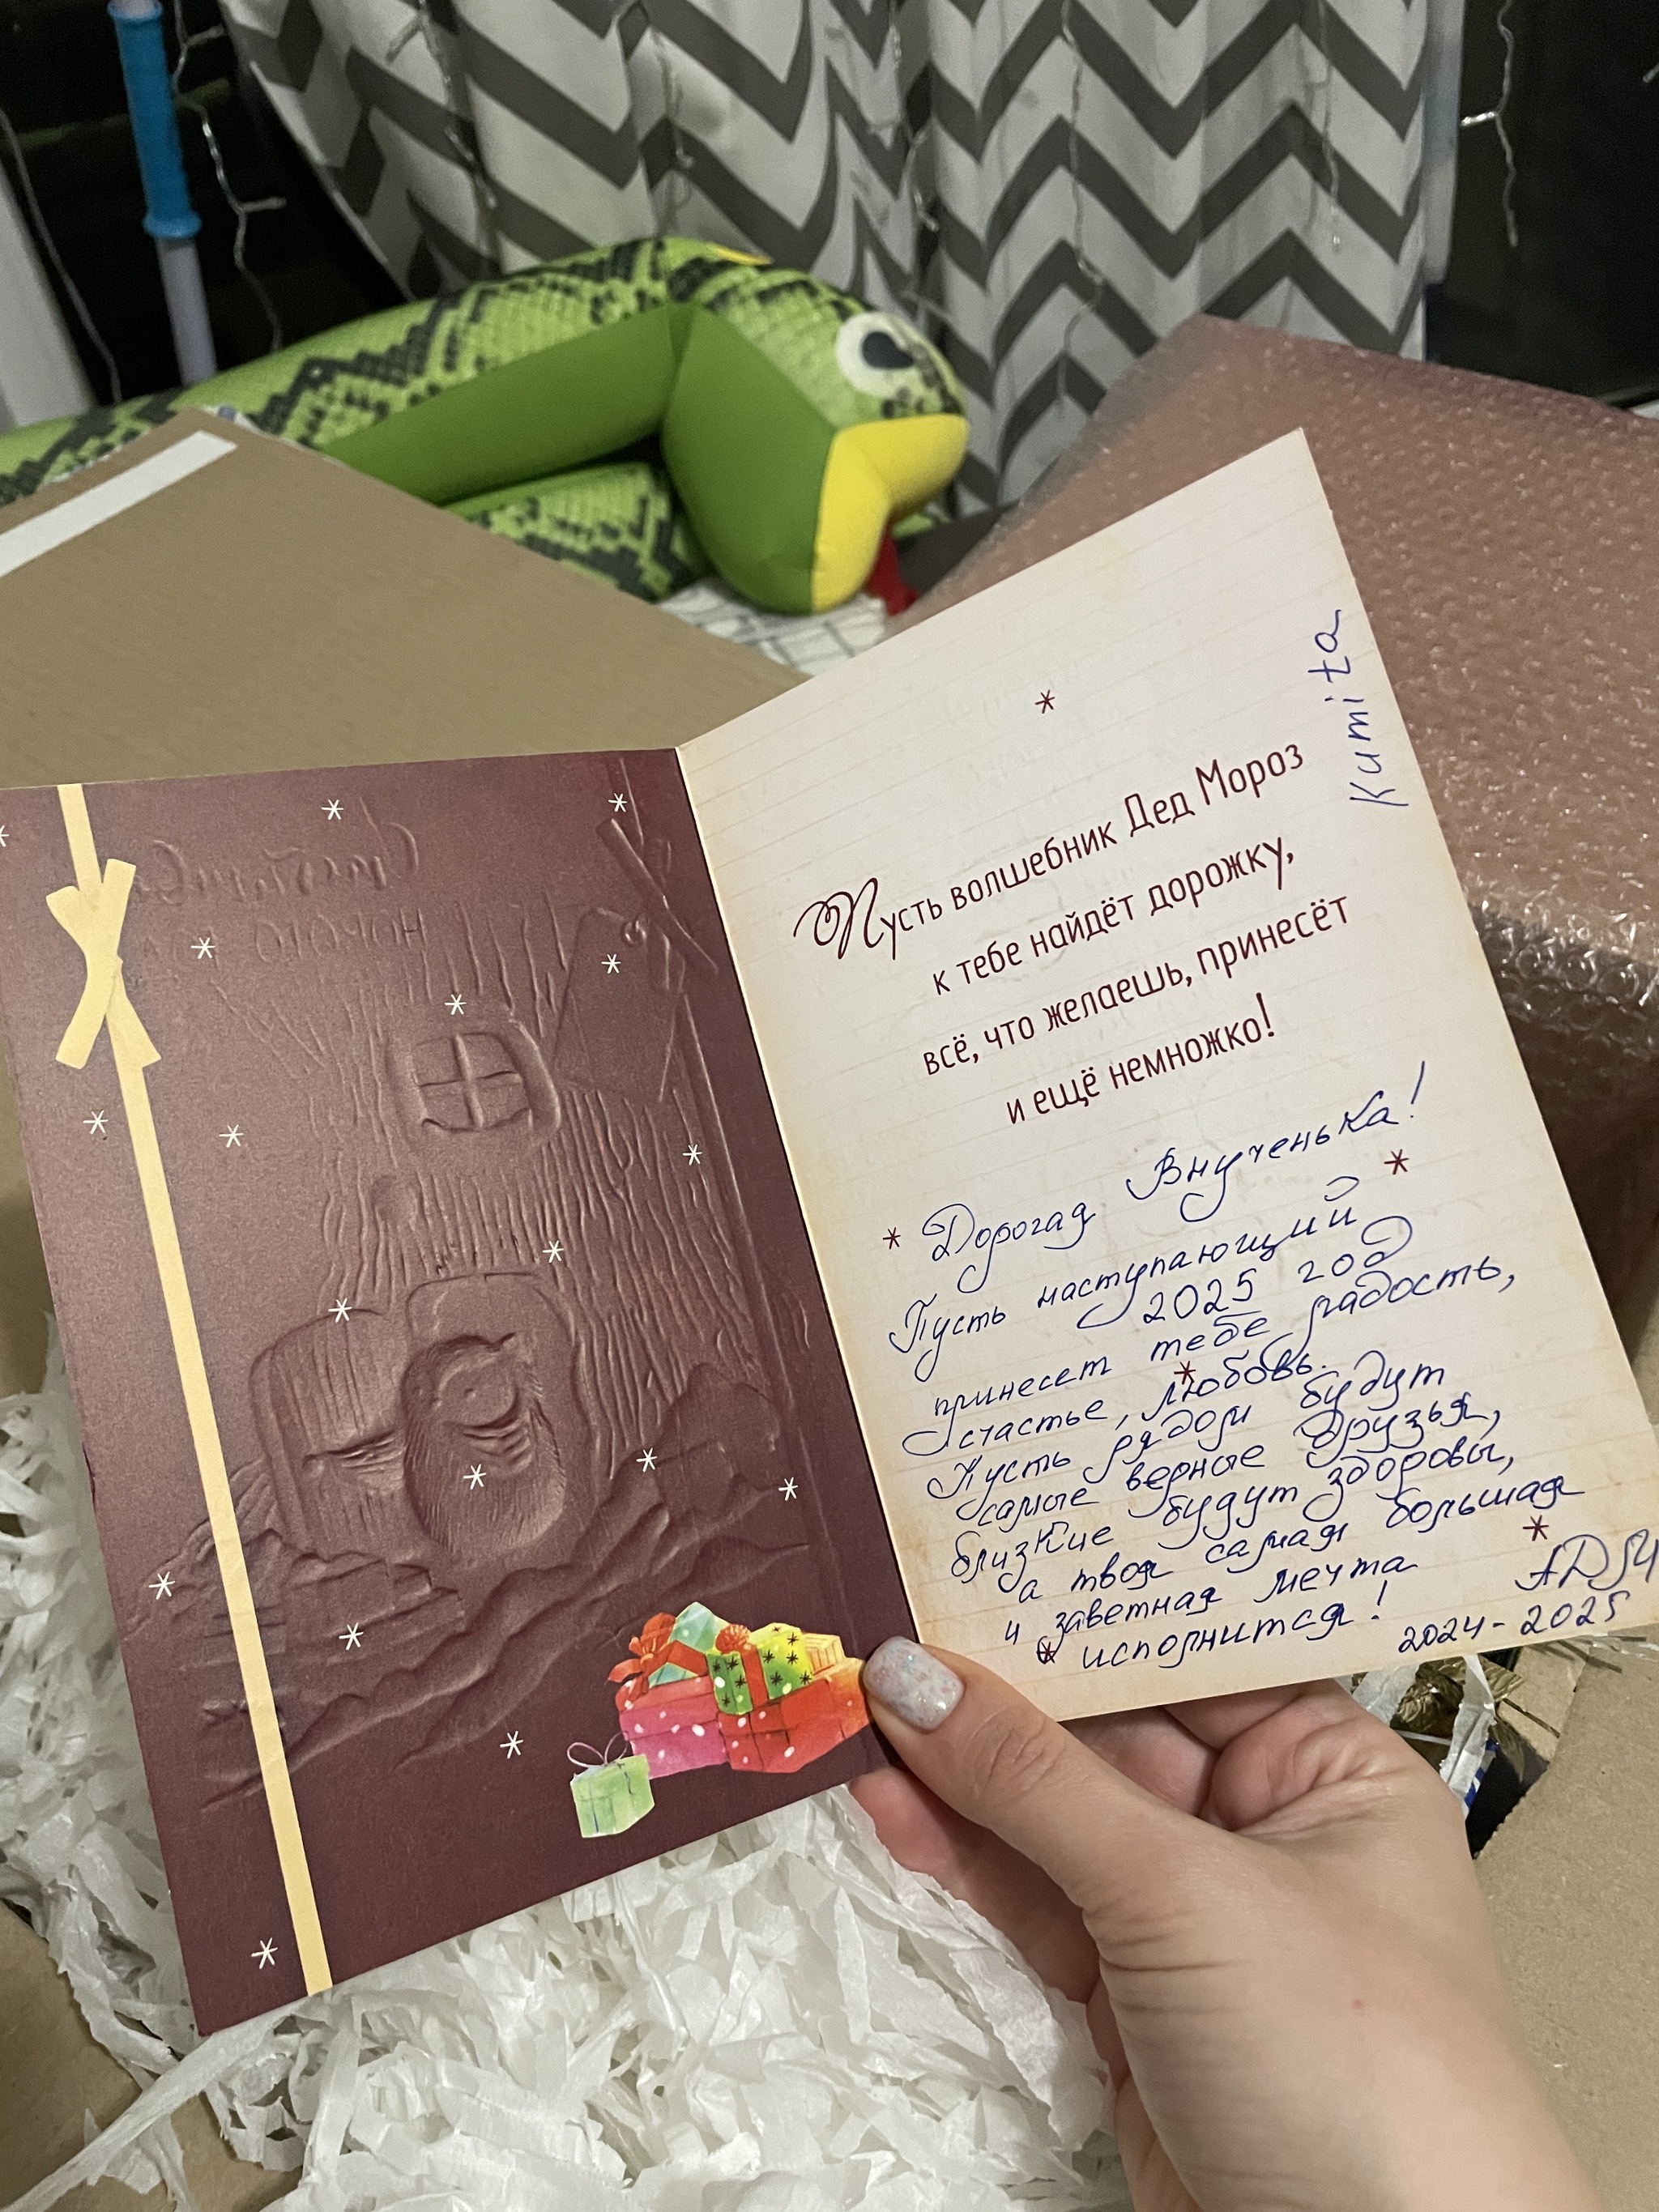 Kumita
Пусть волшебник Дед Мороз
к тебе найдёт дорожку,
всё, что желаешь, принесёт
и ещё немножко!
Дорогая Внученька!
Пусть наступающий
2025 год
принесет тебе радость,
счастье, любовь.
Пусть рядом будут
самые верные друзья,
близкие будут здоровы,
а твоя самая большая
и заветная мечта
исполнится!
АДМ
2024-2025